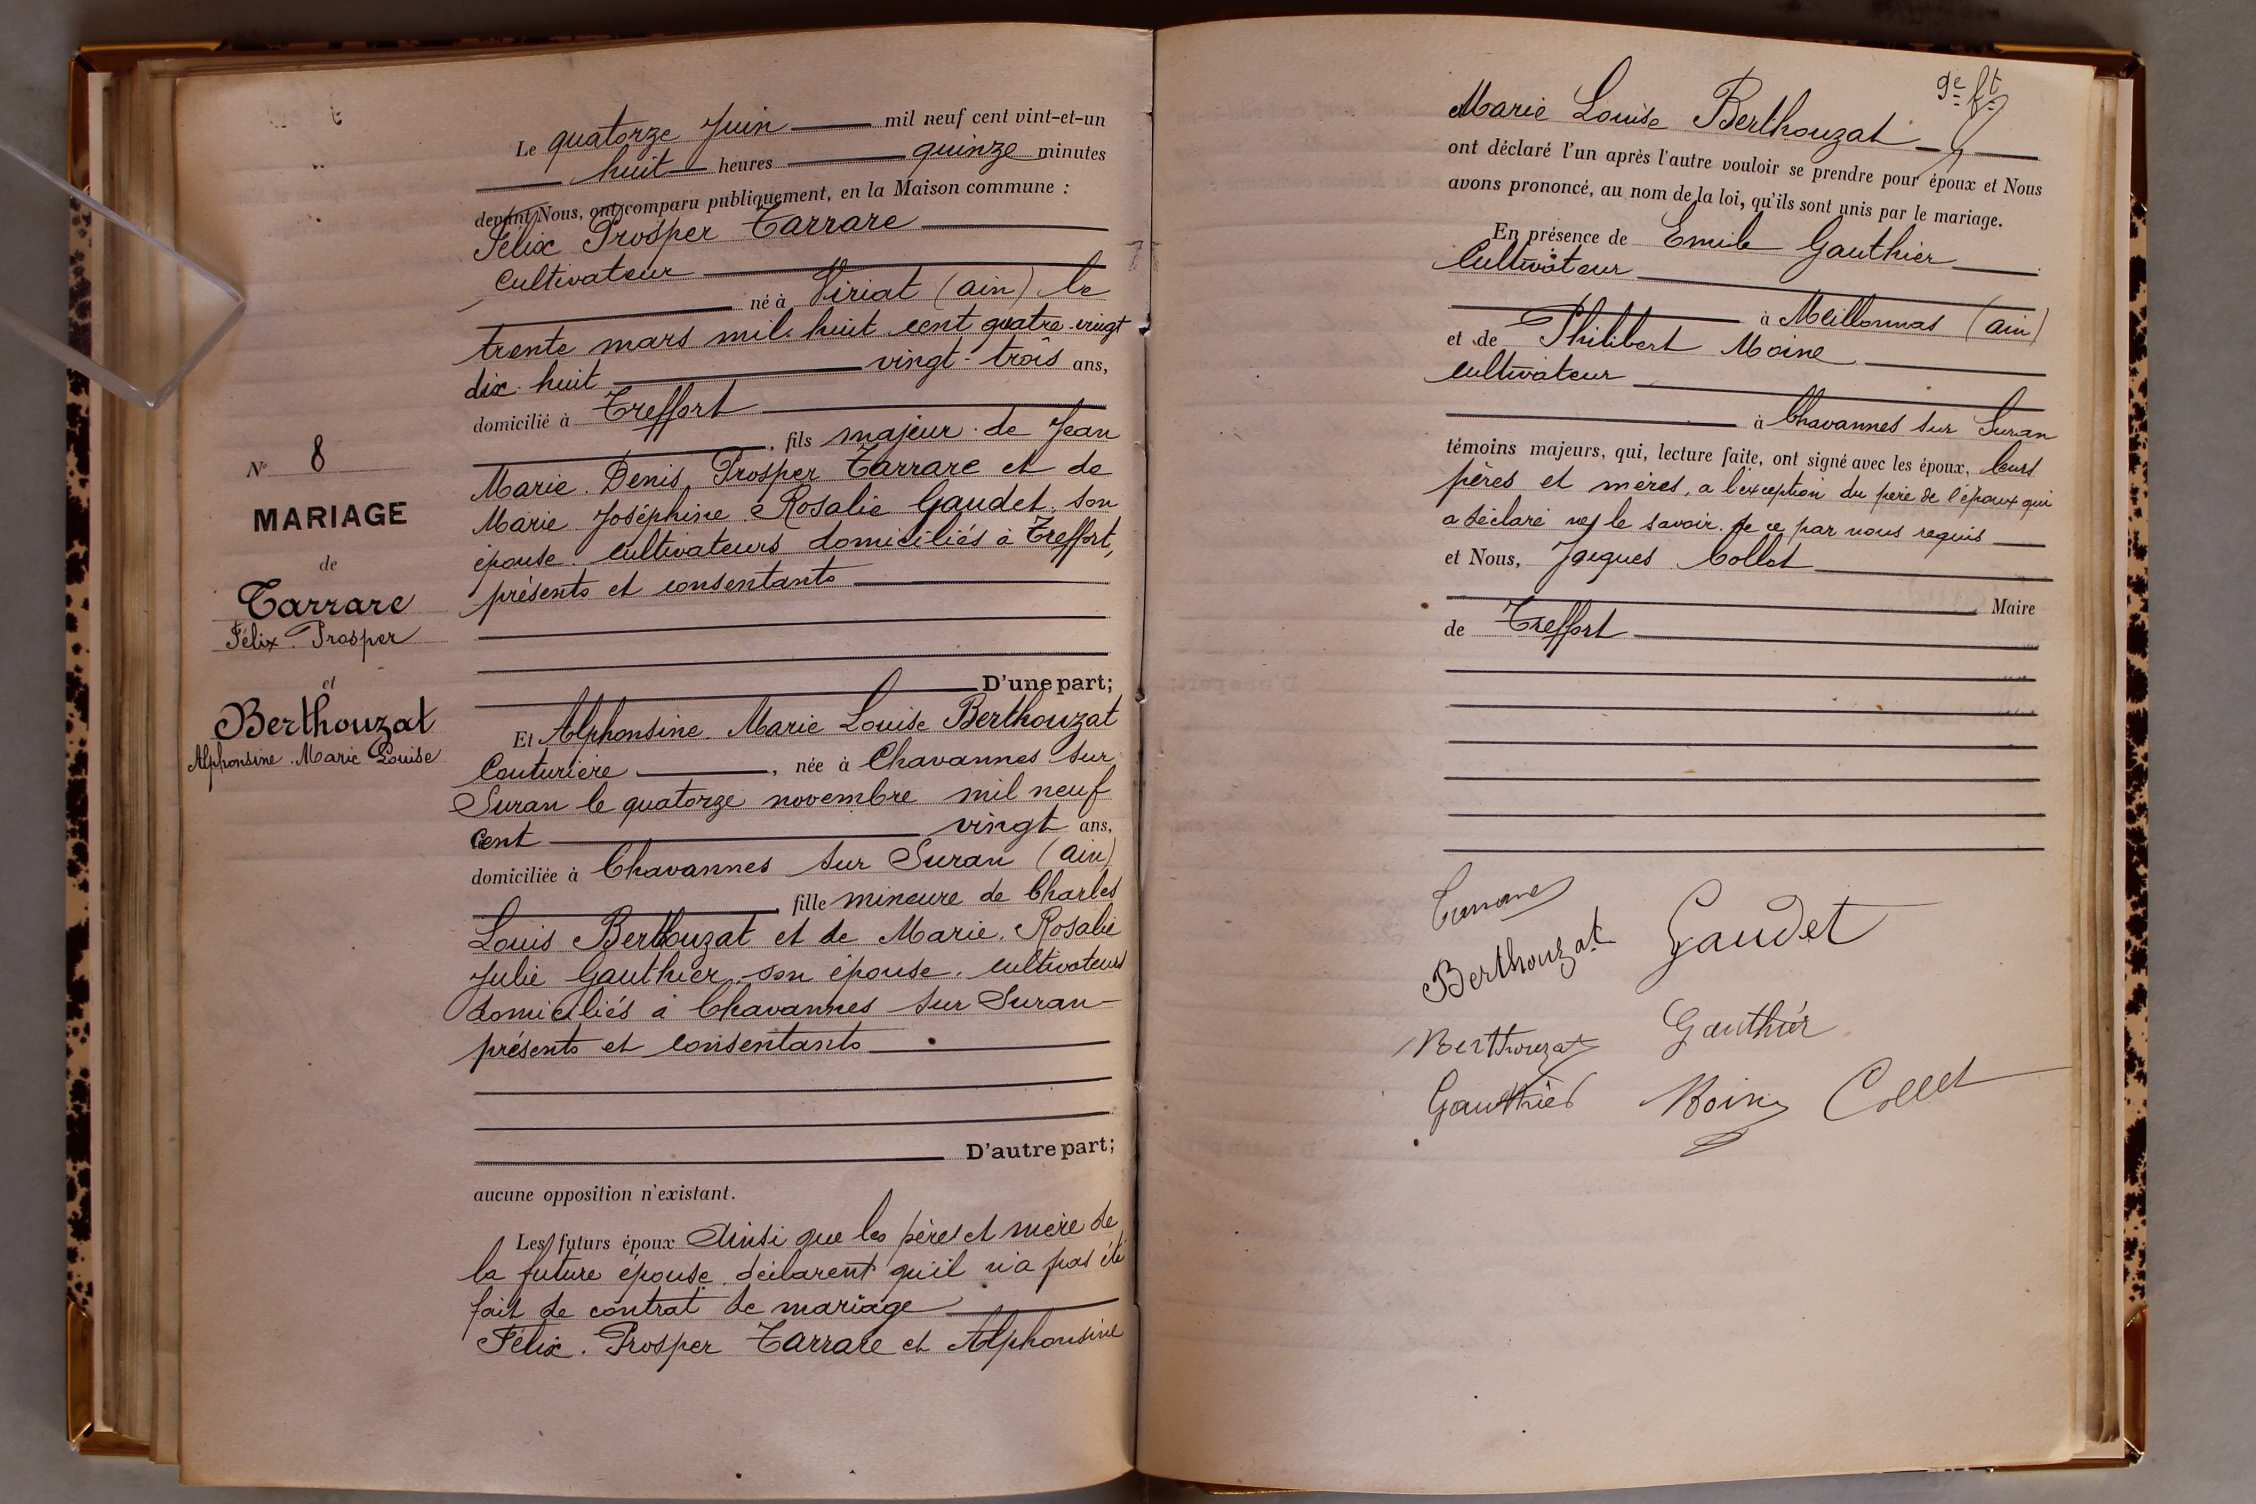 N° 8
MARIAGE
de
Tarrare
Félix. Prosper
et
Berthouzat
Alphonsine. Marie Louise
Le quatorze Juin mil neuf cent vint-et-un
huit heures quinze minutes
devant Nous, ont comparu publiquement, en la Maison commune :
Félix Prosper Tarrare
Cultivateur
né à Viriat (ain) le
trente mars mil huit cent quatre vingt
dix huit vingt-trois ans,
domicilié à Treffort
, fils majeur de Jean
Marie. Denis Prosper Tarrare et de
Marie Joséphine Rosalie Gaudet. son
épouse. cultivateurs domiciliés à Treffort,
présents et consentants
D'une part;
Et Alphonsine. Marie Louise Berthouzat
Couturière , née à Chavannes sur
Suran le quatorze novembre mil neuf
cent vingt ans,
domiciliée à Chavannes sur Suran (ain)
fille mineure de Charles
Louis Berthouzat et de Marie. Rosalie
Julie Gauthier son épouse. cultivateurs
domiciliés à Chavannes sur Suran-
présents et consentants
D'autre part;
aucune opposition n'existant.
Les futurs époux ainsi que les père et mère de
la future épouse déclarent qu'il n'a pas été
fait de contrat de mariage
Félix. Prosper Tarrare et Alphonsine
9e ft
Marie Louise Berthouzat
ont déclaré l'un après l'autre vouloir se prendre pour époux et Nous
avons prononcé, au nom de la loi, qu'ils sont unis par le mariage.
En présence de Emile Gauthier
Cultivateur
à Meillonnas (ain)
et de Philibert Moine
cultivateur
à Chavannes sur Suran
témoins majeurs, qui, lecture faite, ont signé avec les époux, leurs
pères et mères, a l'exception du père de l'époux qui
a déclaré ne le savoir. de ce par nous requis
et Nous, Jacques Collet
Maire
de Treffort
Tarrare
Berthouzat Gaudet
Berthouzat Gauthier
Gauthier Moine Collet